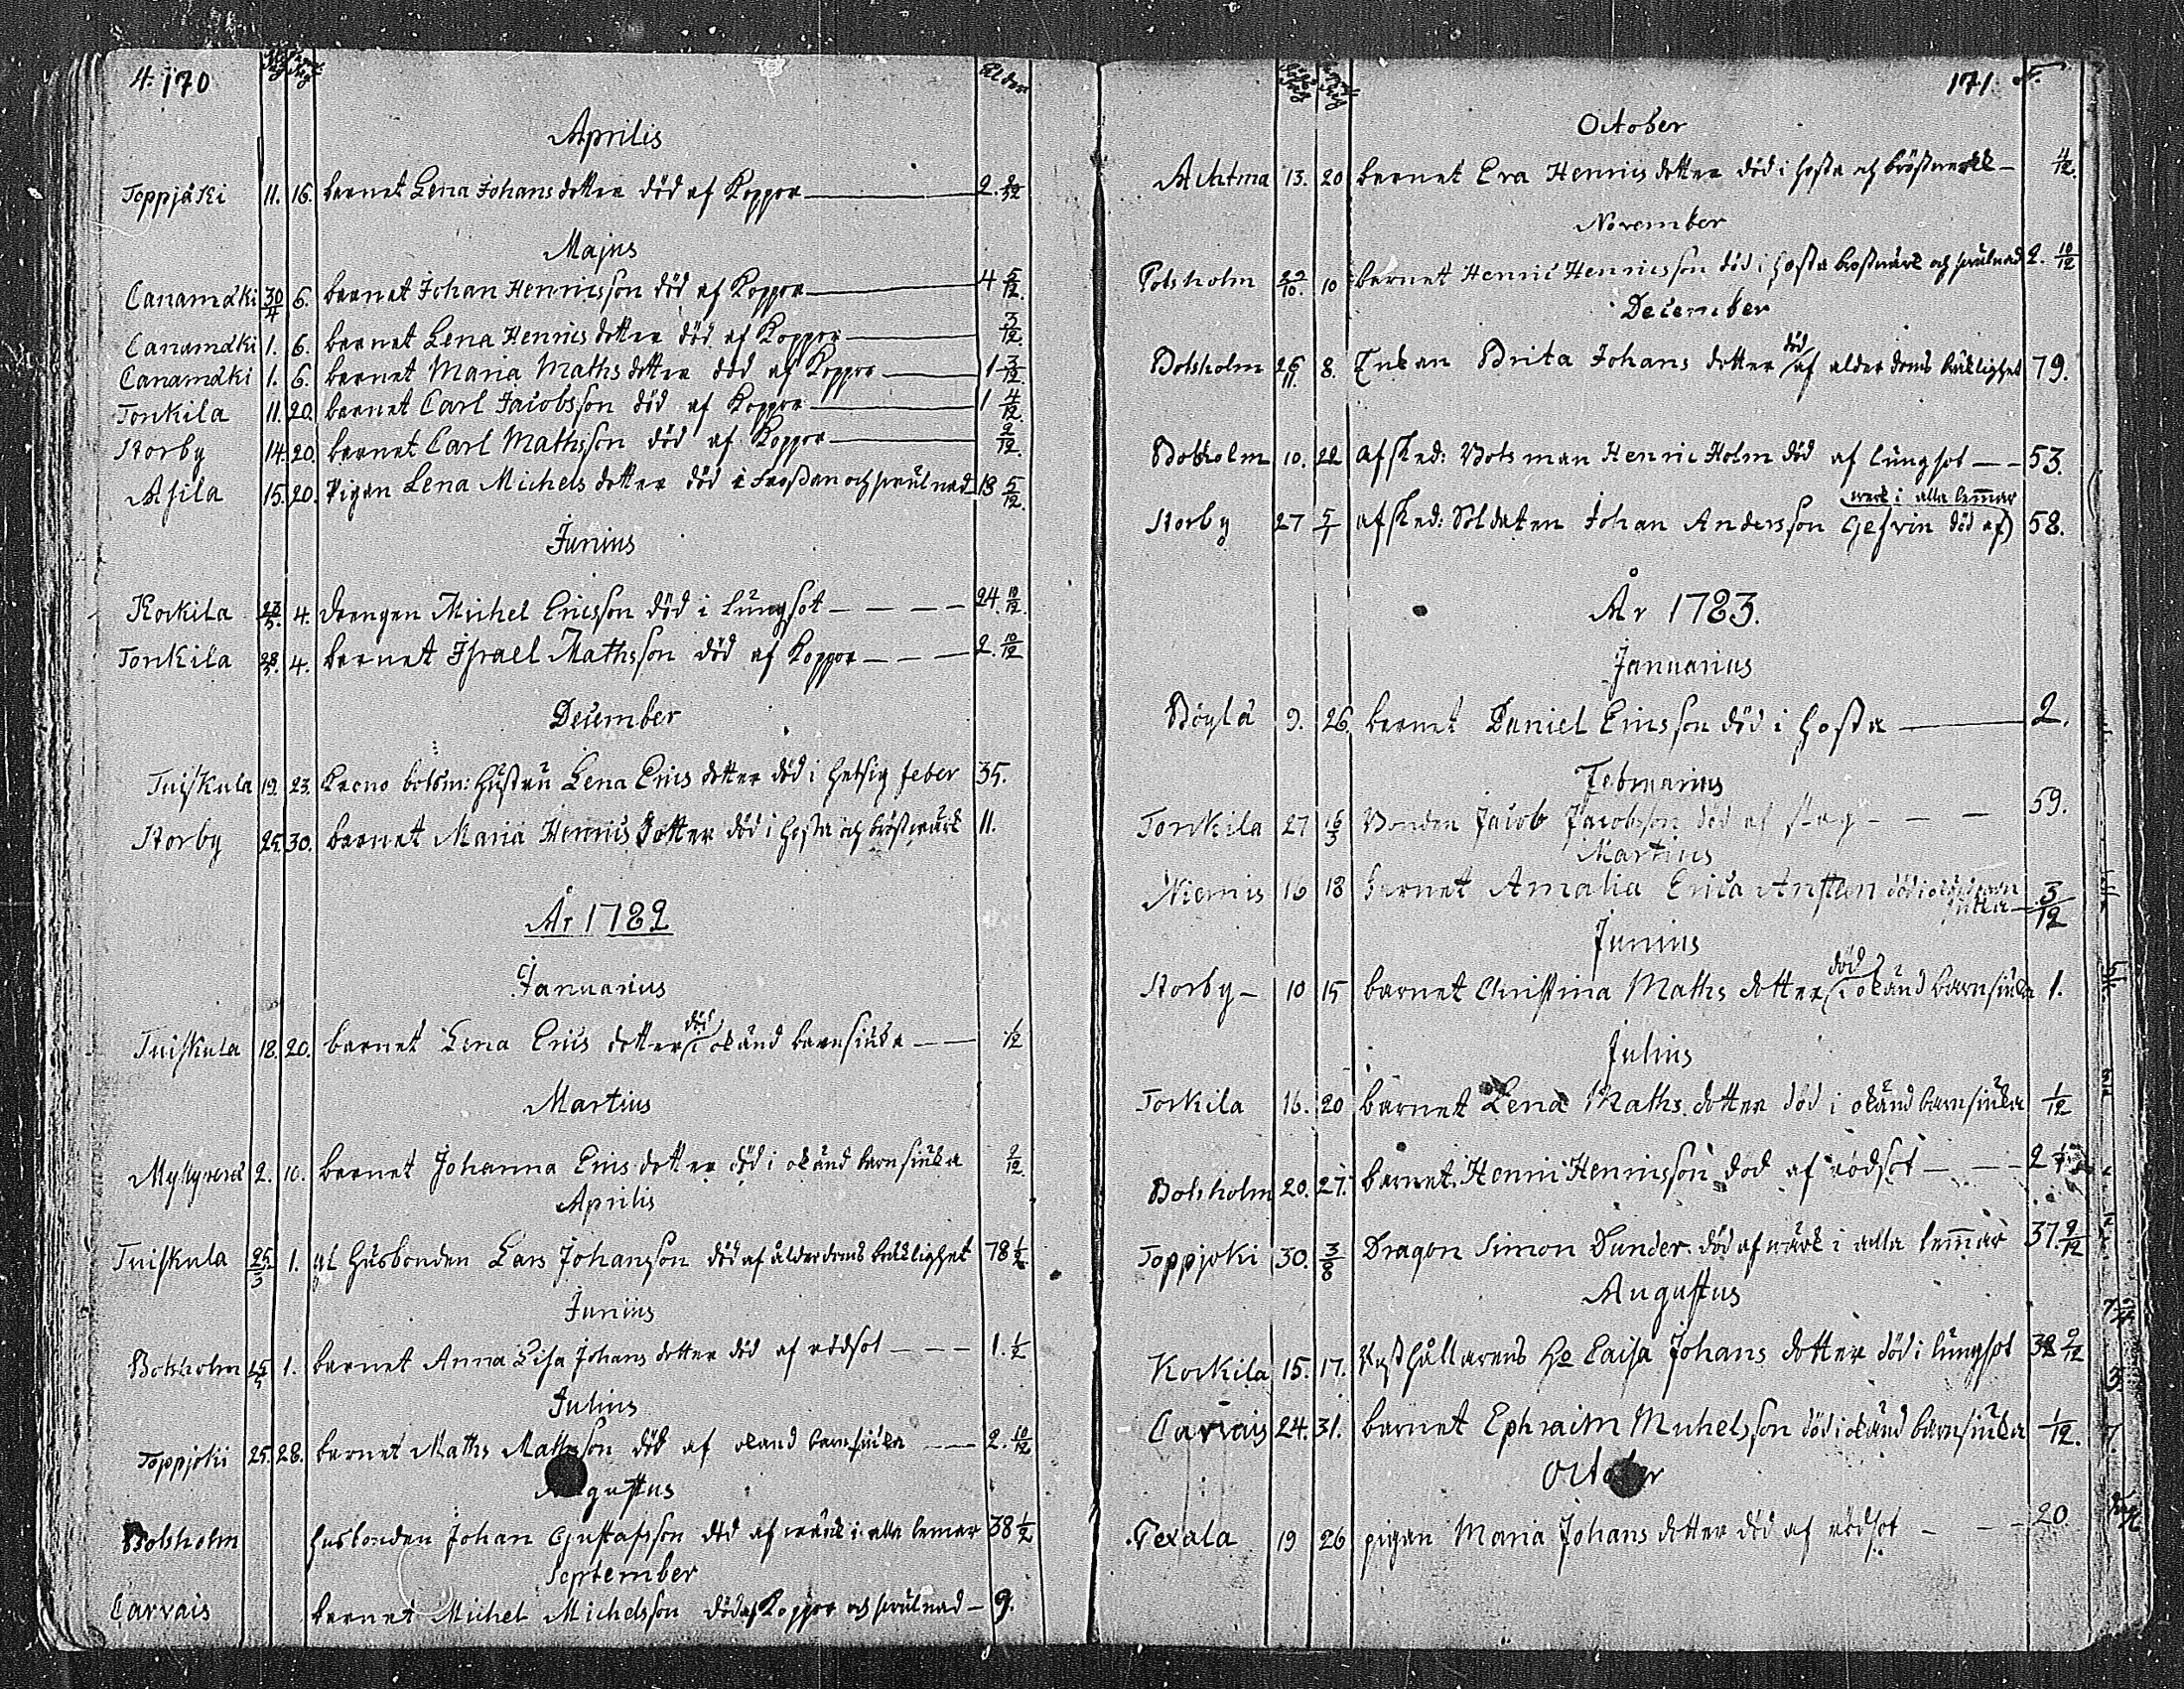 4. 170
Åldern
Aprilis
Toppjåki 11. 16. barnet Lena Johans dotter död af Koppor 2. 9/12
Majus
Canamäki 30/4 6. barnet Johan Henricsson död af Koppor 4 5/12.
Canamäki 1. 6. barnet Lena Henrics dotter död af Koppor 3/12.
Canamäki 1. 6. barnet Maria Maths dotter död af Koppor 1 3/12.
Tonkila 11. 20. barnet Carl Jacobsson död af Koppor 1 4/12
Storby 14. 20. barnet Carl Mathsson död af Koppor 2/12.
Asila 15. 20. Pigan Lena Michels dotter död i Frossan och swulnad 18 5/12.
Junius
Korkila 4. drengen Michel Ericsson död i lungsot 24. 10/12.
Tonkila 4. barnet Israel Mathsson död af Koppor 2. 10/12
December
Tuiskula 19. 23. Krono botsm: hustru Lena Erics dotter död i hetsig feber 35.
Storby 25. 30. barnet Maria Henrics Dotter död i hosta och bröstwärk 11.
År 1782
Januarius
Tuiskula 18. 20. barnet Lena Erics dotter död i okänd barnsiuka 1/12
Martius
2. 10. barnet Johanna Erics dotter död i okänd barnsiuka 2/12.
Aprilis
Tuiskula 25/3 1. husbonden Lars Johansson död af ålderdoms bräcklighet 78 1/2
Junius
Botsholm 1. barnet Anna Lisa Johans dotter död af rödsot 1. 1/2
Julius
Toppjoki 25. 28. barnet Maths Mathsson död af okänd barnsiuka 2. 10/12
Augustus
Botsholm husbonden Johan Gustafsson död af wärk i alla lemar 38 1/2
September
Carvais barnet Michel Michelsson död af Koppor och swulnad 9.
171.
October
Achtma 13. 20 barnet Eva Henrics dotter död i hosta och bröstwerk 4/12.
November
Potsholm 29/10. 10 barnet Henric Henricsson död i hosta bröstwärk och swulnad 2. 10/12
December
Botsholm 26/11. 8. Enkan Brita Johans dotter död af alderdoms bräcklighet 79.
Botsholm 10. 22 afsked: Botsman Henric Holm död af lungsot 53.
werk i alla lemmar
Storby 27 5/1 afsked: Soldaten Johan Andersson Gefvin död af 58.
År 1783.
Januarius
Böylä 9. 26. barnet Daniel Ericsson död i hosta 2.
Februarius
Tonkila 27 16/3 Bonden Jacob Jacobsson död af slag 59.
Martius
Niemis 16 18 barnet Amalia Erica död i okänd barn siuka 3/12
Junius
Storby 10 15 barnet Christina Maths dotter död i okänd barnsiuka 1.
Julius
Torkila 16. 20 barnet Lena Maths dotter död i okänd barnsiuka 1/12
Botsholm 20. 27. barnet Henric Henricsson död af rödsot 2
Toppjoki 30. 3/8 Dragon Simon Dunder död af wärk i alla lemmar 37. 9/12
Augustus
Korkila 15. 17. Rusthållarens Ho Caisa Johans dotter död i lungsot 38 9/12
Carvais 24. 31. barnet Ephraim Michelsson död i okänd barnsiuka 1/12.
October
Texala 19 26 pigan Maria Johans dotter död af rödsot 20